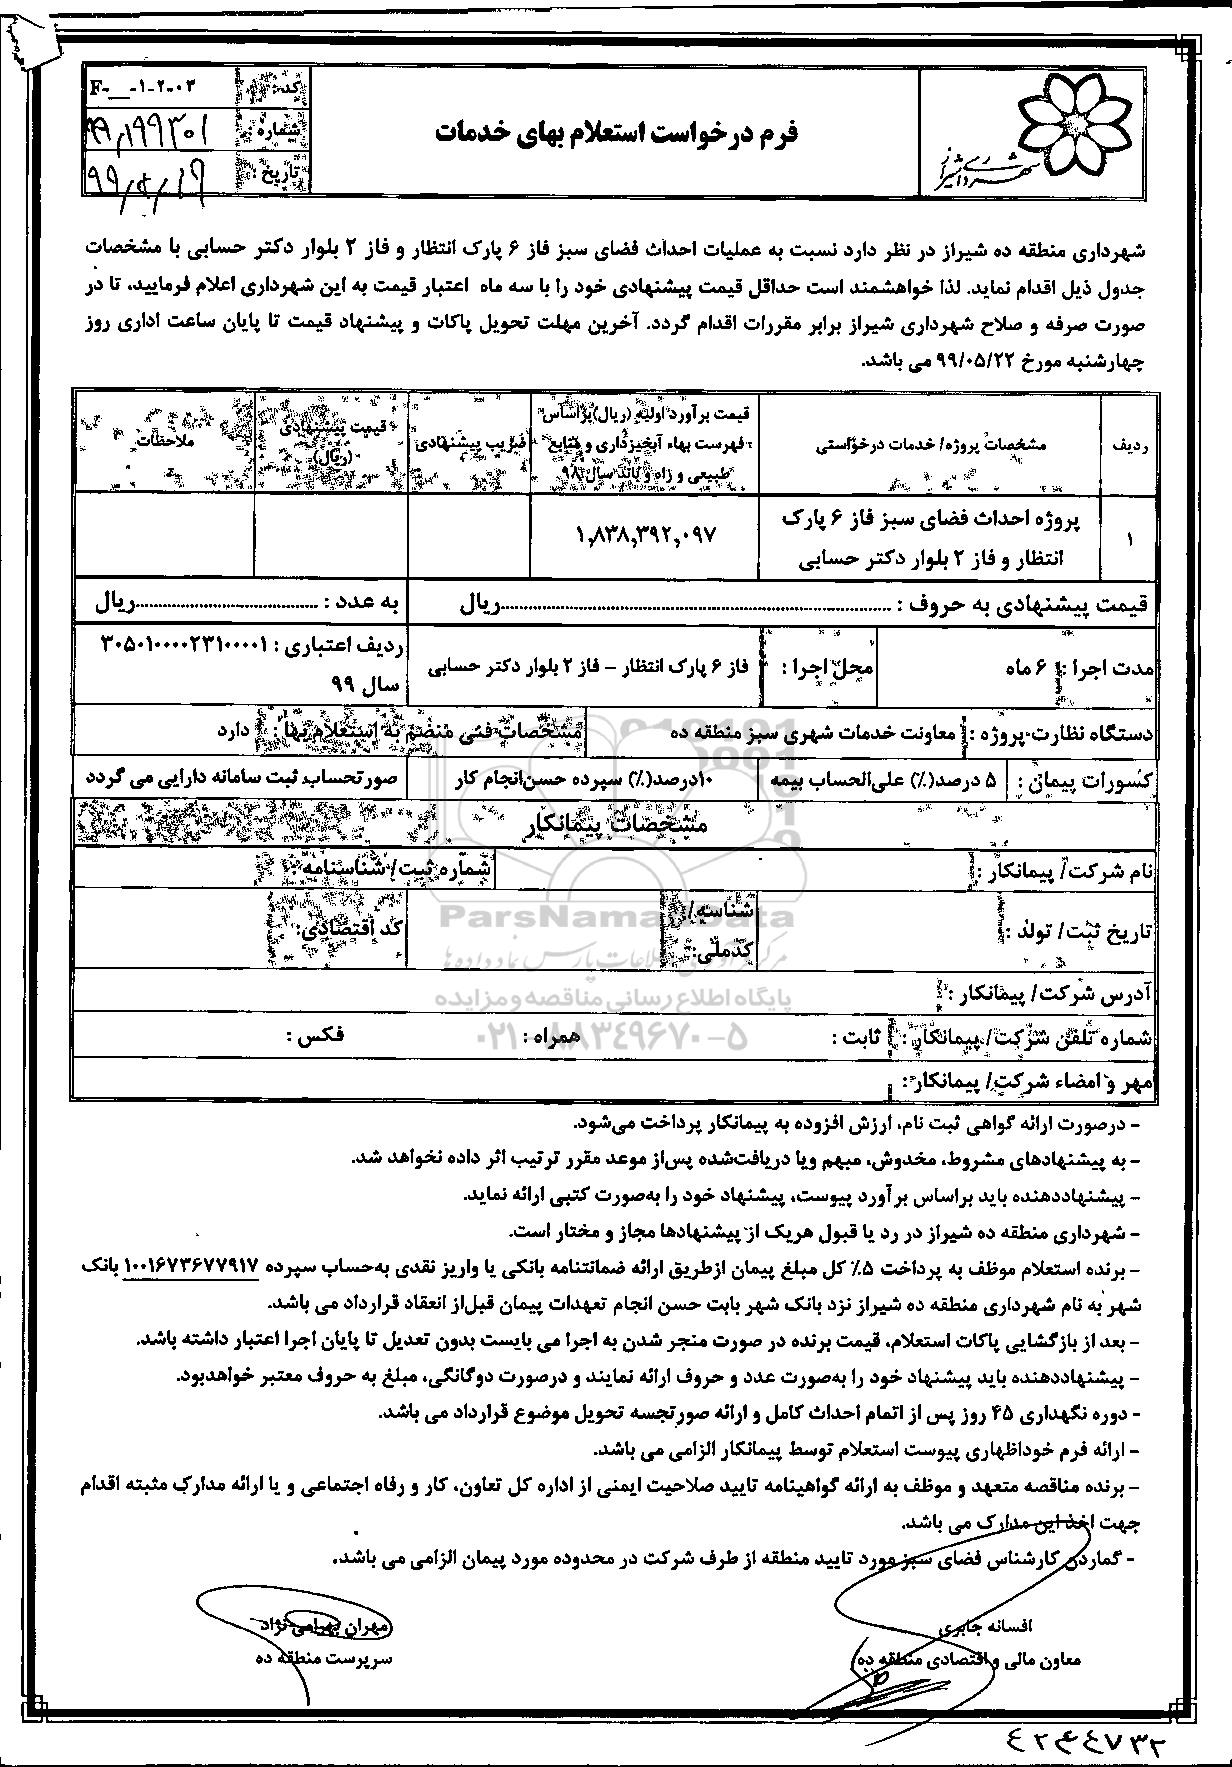 شهرداری شیراز
فرم درخواست استعلام بهای خدمات
کد: F-__-۱-۲-۰۳
شماره:
تاریخ:
شهرداری منطقه ده شیراز در نظر دارد نسبت به عملیات احداث فضای سبز فاز ۶ پارک انتظار و فاز ۲ بلوار دکتر حسابی با مشخصات
جدول ذیل اقدام نماید. لذا خواهشمند است حداقل قیمت پیشنهادی خود را با سه ماه اعتبار قیمت به این شهرداری اعلام فرمایید، تا در
صورت صرفه و صلاح شهرداری شیراز برابر مقررات اقدام گردد. آخرین مهلت تحویل پاکات و پیشنهاد قیمت تا پایان ساعت اداری روز
چهارشنبه مورخ ۹۹/۰۵/۲۲ می باشد.
ردیف
مشخصات پروژه/ خدمات درخواستی
قیمت برآورد اولیه (ریال)براساس
فهرست بهاء آبخیزداری و منابع
طبیعی و راه و باند سال ۹۸
ضریب پیشنهادی
قیمت پیشنهادی
(ریال)
ملاحظات
۱
پروژه احداث فضای سبز فاز ۶ پارک
انتظار و فاز ۲ بلوار دکتر حسابی
۱,۸۳۸,۳۹۲,۰۹۷
قیمت پیشنهادی به حروف : ........................................ریال
به عدد : ........................................ریال
مدت اجرا : ۶ ماه
محل اجرا : فاز ۶ پارک انتظار – فاز ۲ بلوار دکتر حسابی
ردیف اعتباری : ۳۰۵۰۱۰۰۰۰۲۳۱۰۰۰۰۱
سال ۹۹
دستگاه نظارت پروژه : معاونت خدمات شهری سبز منطقه ده
مشخصات فنی منضم به استعلام بها : دارد
کسورات پیمان : ۵ درصد(٪) علی‌الحساب بیمه
۱۰درصد(٪) سپرده حسن‌انجام کار
صورتحساب ثبت سامانه دارایی می گردد
مشخصات پیمانکار
نام شرکت/ پیمانکار :
شماره ثبت/ شناسنامه :
تاریخ ثبت/ تولد :
شناسه/
کدملی:
کد اقتصادی:
ParsNamadData
پایگاه اطلاع رسانی مناقصه و مزایده
۰۲۱-۸۸۳۴۹۶۷۰-۵
آدرس شرکت/ پیمانکار :
شماره تلفن شرکت/ پیمانکار : ثابت : همراه : فکس :
مهر و امضاء شرکت/ پیمانکار :
- درصورت ارائه گواهی ثبت نام، ارزش افزوده به پیمانکار پرداخت می‌شود.
- به پیشنهادهای مشروط، مخدوش، مبهم ویا دریافت‌شده پس‌از موعد مقرر ترتیب اثر داده نخواهد شد.
- پیشنهاددهنده باید براساس برآورد پیوست، پیشنهاد خود را به‌صورت کتبی ارائه نماید.
- شهرداری منطقه ده شیراز در رد یا قبول هریک از پیشنهادها مجاز و مختار است.
- برنده استعلام موظف به پرداخت ۵٪ کل مبلغ پیمان ازطریق ارائه ضمانتنامه بانکی یا واریز نقدی به‌حساب سپرده ۱۰۰۱۶۷۳۶۷۷۹۱۷ بانک
شهر به نام شهرداری منطقه ده شیراز نزد بانک شهر بابت حسن انجام تعهدات پیمان قبل‌از انعقاد قرارداد می باشد.
- بعد از بازگشایی پاکات استعلام، قیمت برنده در صورت منجر شدن به اجرا می بایست بدون تعدیل تا پایان اجرا اعتبار داشته باشد.
- پیشنهاددهنده باید پیشنهاد خود را به‌صورت عدد و حروف ارائه نمایند و درصورت دوگانگی، مبلغ به حروف معتبر خواهدبود.
- دوره نگهداری ۴۵ روز پس از اتمام احداث کامل و ارائه صورتجسه تحویل موضوع قرارداد می باشد.
- ارائه فرم خوداظهاری پیوست استعلام توسط پیمانکار الزامی می باشد.
- برنده مناقصه متعهد و موظف به ارائه گواهینامه تایید صلاحیت ایمنی از اداره کل تعاون، کار و رفاه اجتماعی و یا ارائه مدارک مثبته اقدام
جهت اخذ این مدارک می باشد.
- گماردن کارشناس فضای سبز مورد تایید منطقه از طرف شرکت در محدوده مورد پیمان الزامی می باشد.
افسانه جابری
معاون مالی و اقتصادی منطقه ده
مهران بهرامی نژاد
سرپرست منطقه ده